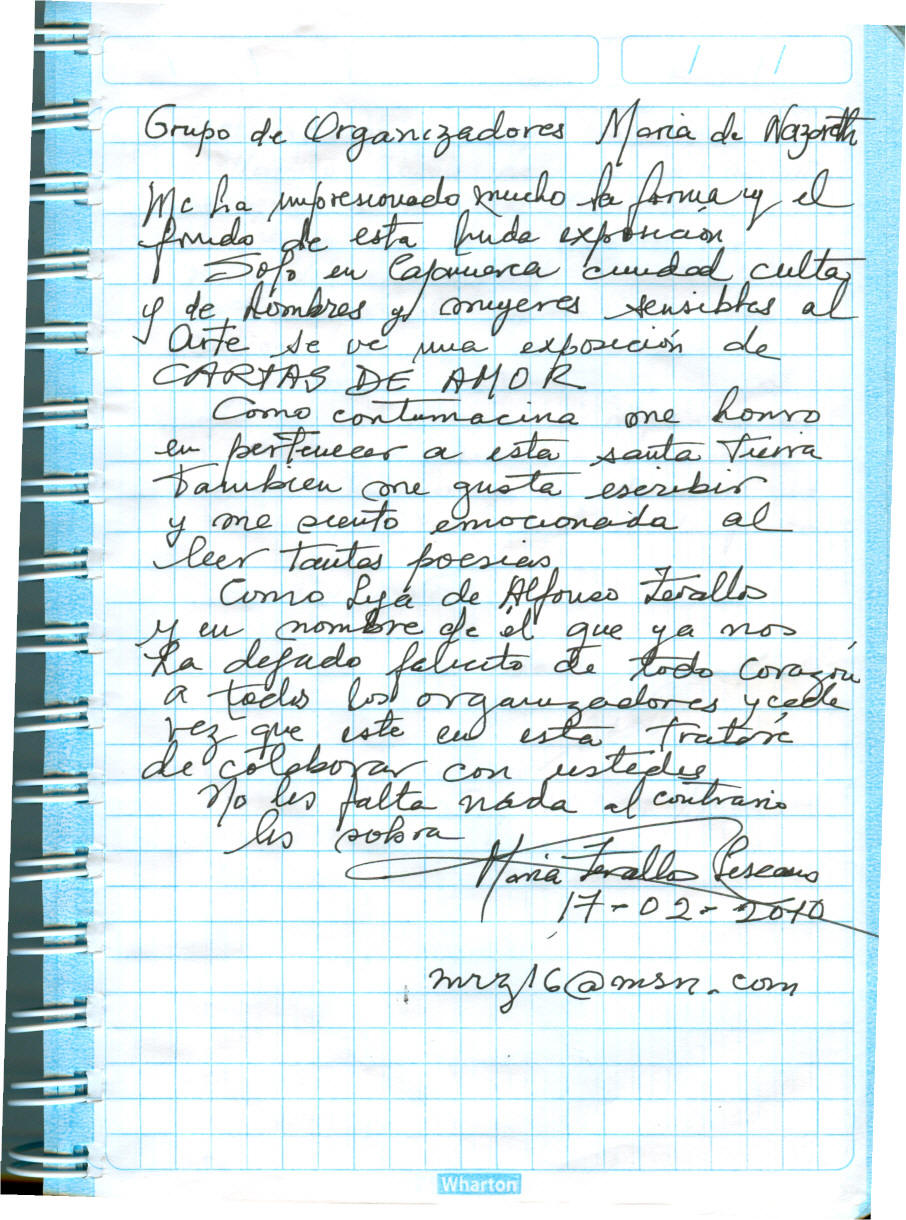 / /
Grupo de Organizadores Maria de Nazareth
Me ha impresionado mucho la forma y el
fondo de esta linda exposición
Solo en Cajamarca ciudad culta
y de hombres y mugeres sensibles al
Arte se ve una exposición de
CARTAS DE AMOR
Como contumacina me honro
en pertenecer a esta santa Tierra
Tambien me gusta escribir
y me siento emocionada al
leer tantas poesias
Como de Alfonso Zevallos
y en nombre de él que ya nos
ha dejado felicito de todo corazón
a todos los organizadores y cada
vez que este en esta Tratáre
de colaborar con ustedes
No les falta nada al contrario
les sobra
Maria Zevallos
17-02-2010
mrz16@msn.com
Wharton